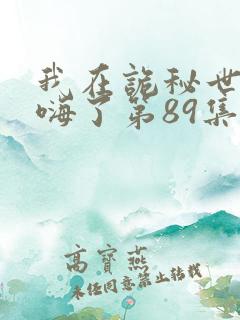 我在詭秘世
嗨了第89集
高寶燕
未经同意禁止转载